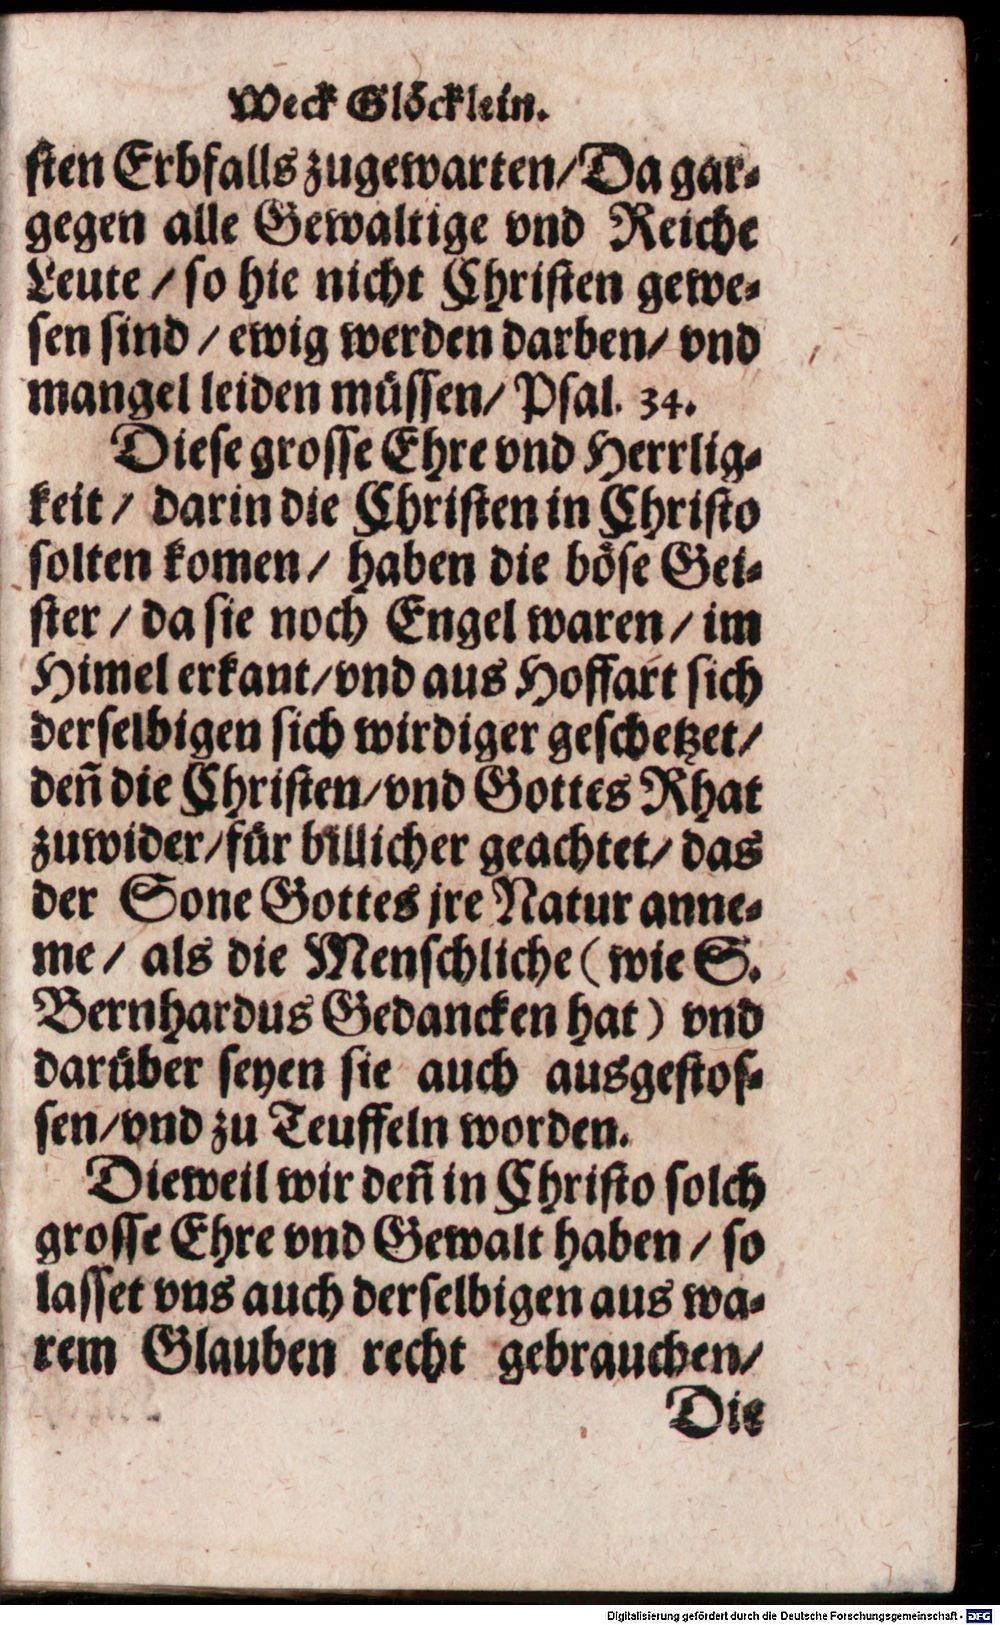 Weck Glöcklein.
sten Erbfalls zugewarten/Da gar-
gegen alle Gewaltige vnd Reiche
Leute / so hie nicht Christen gewe-
sen sind / ewig werden darben/ vnd
mangel leiden müssen/ Psal. 34.
Diese grosse Ehre vnd Herrlig-
keit / darin die Christen in Christo
solten komen / haben die böse Gei-
ster / da sie noch Engel waren / im
Himel erkant/vnd aus Hoffart sich
derselbigen sich wirdiger geschetzet/
deñ die Christen/vnd Gottes Rhat
zuwider/für billicher geachtet/ das
der Sone Gottes jre Natur anne-
me / als die Menschliche (wie S.
Bernhardus Gedancken hat) vnd
darüber seyen sie auch ausgestos-
sen/vnd zu Teuffeln worden.
Dieweil wir deñ in Christo solch
grosse Ehre vnd Gewalt haben / so
lasset vns auch derselbigen aus wa-
rem Glauben recht gebrauchen/
Die
Digitalisierung gefördert durch die Deutsche Forschungsgemeinschaft - DFG